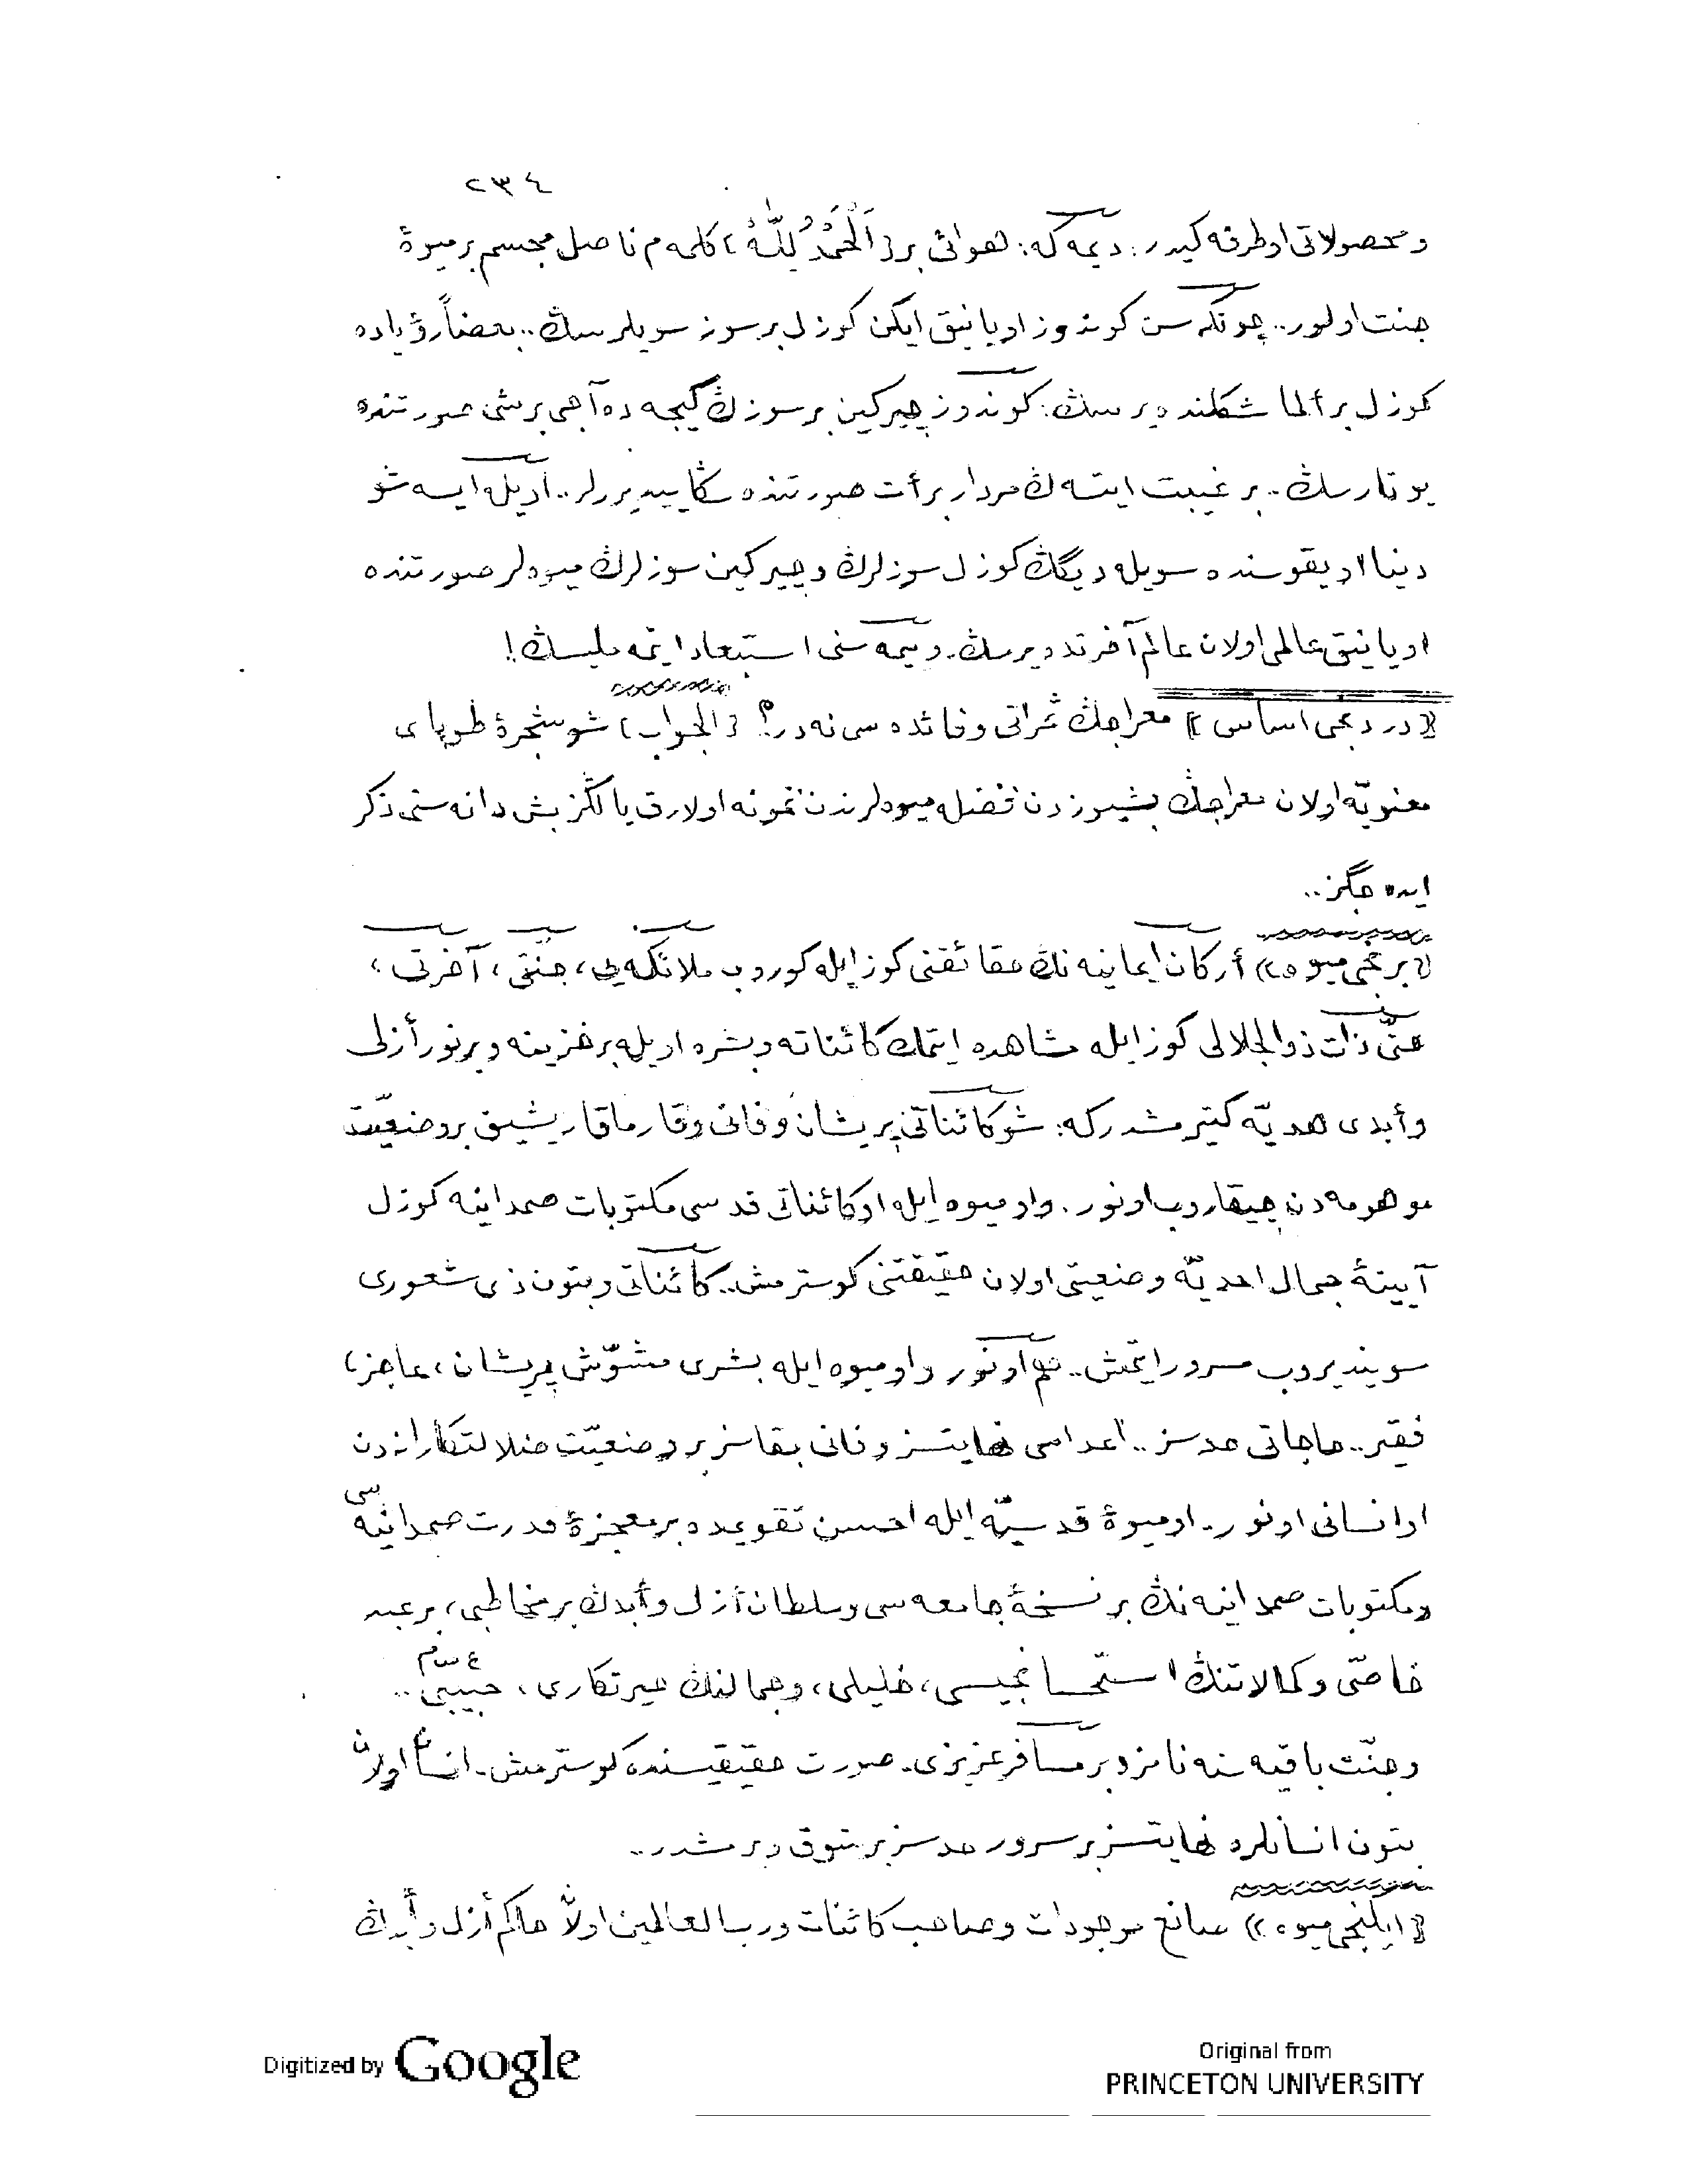 ٢٣٤
ومحصولاتی او طرفه کیدر. دیمه که: هوائی بر ﴿اَلْحَمْدُ لِلّٰهِ﴾ کلمه م ناصل مجسم بر میوۀ
جنت اولور.. چونکه سن کوندوز اویانیق ایکن کوزل بر سوز سویلر سڭ.. بعضاً رؤیاده
کوزل بر ألما شکلنده یرسڭ. کوندوز چیرکین بر سوزڭ گیجه ده آجی بر شی صورتنده
یوتارسڭ.. بر غیبت ایتسه ڭ مردار بر أت صورتنده سڭا ییدیررلر.. اویله ایسه شو
دنیا اویقوسنده سویله دیگڭ کوزل سوزلرڭ و چیرکین سوزلرڭ میوه لر صورتنده
اویانیق عالمی اولان عالم آخرتده یرسڭ. و ییمه سنی استبعاد ایتمه ملیسڭ!
﴿دردنجی اساس﴾ معراجڭ ثمراتی و فائده سی نه در؟ ﴿الجواب﴾ شو شجرۀ طوبای
معنویّه اولان معراجڭ بشیوزدن فضله میوه لرندن نمونه اولارق یالڭز بش دانه سنی ذکر
ایده جگز..
﴿برنجی میوه﴾ أرکان ایمانیه نڭ حقائقنی کوز ایله کوروب ملائکه یی، جنّتی، آخرتی،
حتّی ذات ذوالجلالی کوز ایله مشاهده ایتمك کائناته و بشره اویله بر خزینه و بر نور أزلی
و أبدی هدیّه کتیرمشدرکه: شو کائناتی پریشان و فانی و قارماقاریشیق بر وضعیّت
موهومه دن چیقاروب او نور. و او میوه ایله او کائناتی قدسی مکتوبات صمدانیه کوزل
آیینۀ جمال احدیّه وضعیتی اولان حقیقتنی کوسترمش.. کائناتی و بتون ذی شعوری
سویندیروب مسرور ایتمش.. هم او نور و او میوه ایله بشری مشوّش پریشان، عاجز،
فقیر.. حاجاتی حدسز.. اعداسی نهایتسز و فانی بقاسز بر وضعیّت ضلالتکارانه دن
او انسانی او نور. او میوۀ قدسیّه ایله احسن تقویمده بر معجزۀ قدرت صمدانیه سی
و مکتوبات صمدانیه نڭ بر نسخۀ جامعه سی و سلطان أزل و أبدڭ بر مخاطبی، بر عبد
خاصّی و کمالاتنڭ استحسانجیسی، خلیلی، و جمالنڭ حیرتکاری، حبیبی ع س م..
و جنّت باقیه سنه نامزد بر مسافر عزیزی. صورت حقیقیسنده کوسترمش. انسان اولان
بتون انسانلره نهایتسز بر سرور حدسز بر شوق ویرمشدر..
﴿ایکنجی میوه﴾ صانع موجودات و صاحب کائنات و رب العالمین اولان حاکم أزل و أبدڭ
Digitized by Google
Original from
PRINCETON UNIVERSITY